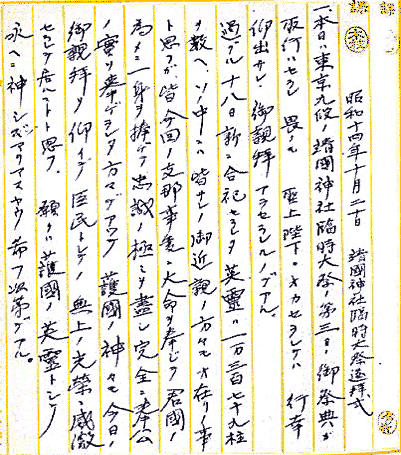 昭和十四年十月二十日 靖國神社臨時大祭遥拝式
一、本日ハ東京九段ノ靖國神社臨時大祭ノ第三日ノ御祭典ガ
取行ハセラレ 畏クモ 聖上陛下ニオカセラレテハ 行幸
仰出サレ 御親拝 アラセラレルノデアル。
過グル十八日新ニ合祀セラレタ英靈ハ一万三百七十九柱
ヲ数ヘ、ソノ中ニハ皆サンノ御近親ノ方々モオ在リノ事
ト思フガ皆今回ノ支那事変ニ大命ヲ奉ジテ君國ノ
為メニ一身ヲ捧ゲテ忠誠ノ極ミヲ盡シ完全ニ奉公
ノ實ヲ挙ゲラレタ方々デアツテ 護國ノ神々モ今日ノ
御親拝ヲ仰イデ臣民トシテノ無上ノ光榮ニ感激
セラレテ居ルコトト思フ。 願クハ護國ノ英靈トシテ
永ヘニ神シズマリマスヤウ希フ次第デアル。